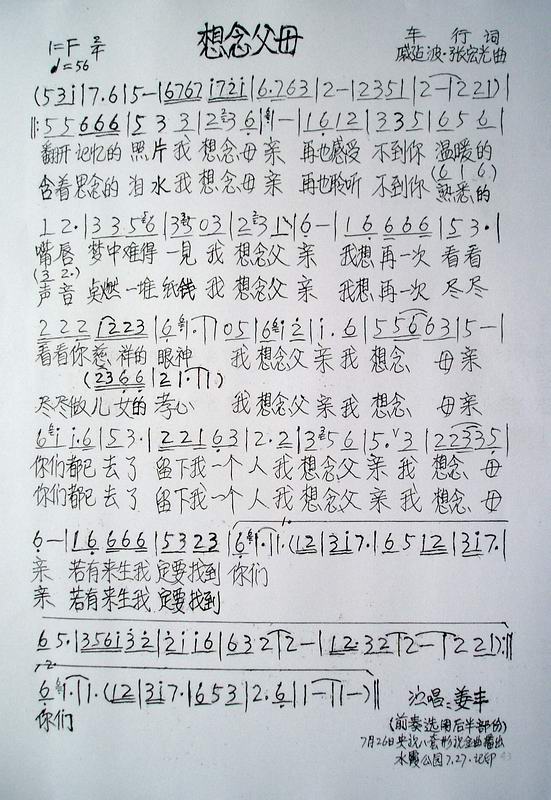 想念父母
1=F 2/4
♩=56
车 行 词
戚建波·张宏光曲
(5 3 i | 7. 6 | 5 — | 6767 i72i | 6. 763 | 2 — | 2351 | 2 — | 2 2 1) |
‖: 5 5 666 | 5 3 3 | 2 3 6 | — | 1612 | 335 | 656 |
翻开记忆的 照片 我 想念母 亲 再也感受 不到你 温暖的
(6 1 6)
含着思念的 泪水 我 想念母 亲 再也聆听 不到你 熟悉的
1 2· | 3 3 5 6 | 3 5 0 3 | 2 3 1 | 6 — | 1 6 6 6 6 | 5 3· |
嘴唇 梦中难得 一见 我 想念父 亲 我想再一次 看看
(3 2·)
声音 点燃一堆 纸钱 我 想念父 亲 我想再一次 尽尽
2 2 2 1223 | 6 1· | 1 0 5 | 6 i 2 | i. 6 | 5 5 6 6 3 | 5 — |
看看你慈祥的 眼神 我 想念父 亲 我 想念 母亲
(2366 | 2 1· | 1)
尽尽做儿女的 孝心 我 想念父 亲 我 想念 母亲
6 i i.6 | 5 3· | 2 2 1 6 3 | 2· 2 | 3 5 6 | 5·ᵛ 3 | 2 2 3 3 5 |
你们都已 去了 留下我一个 人 我 想念父 亲 我 想念 母
你们都已 去了 留下我一个 人 我 想念父 亲 我 想念 母
1.
6 — | 1 6 666 | 5 3 2 3 | 6 1· | 1· (12 | 3 i 7· | 6 5 12 | 3 i 7· |
亲 若有来生我 定要找到 你们
亲 若有来生我 定要找到
6 5· | 356i32 | 2ii6 | 6 3 2 | 2 — | 12·32 | 2 — | 2 2 1) :‖
2.
6 1· | 1· (12 | 3 i 7· | 6 5 3 | 2· 6 | 1 — | 1 —) ‖
你们
演唱:姜丰
(前奏选用后半部份)
7月26日央视八套影视金曲播出
水霞公园7.27.记印